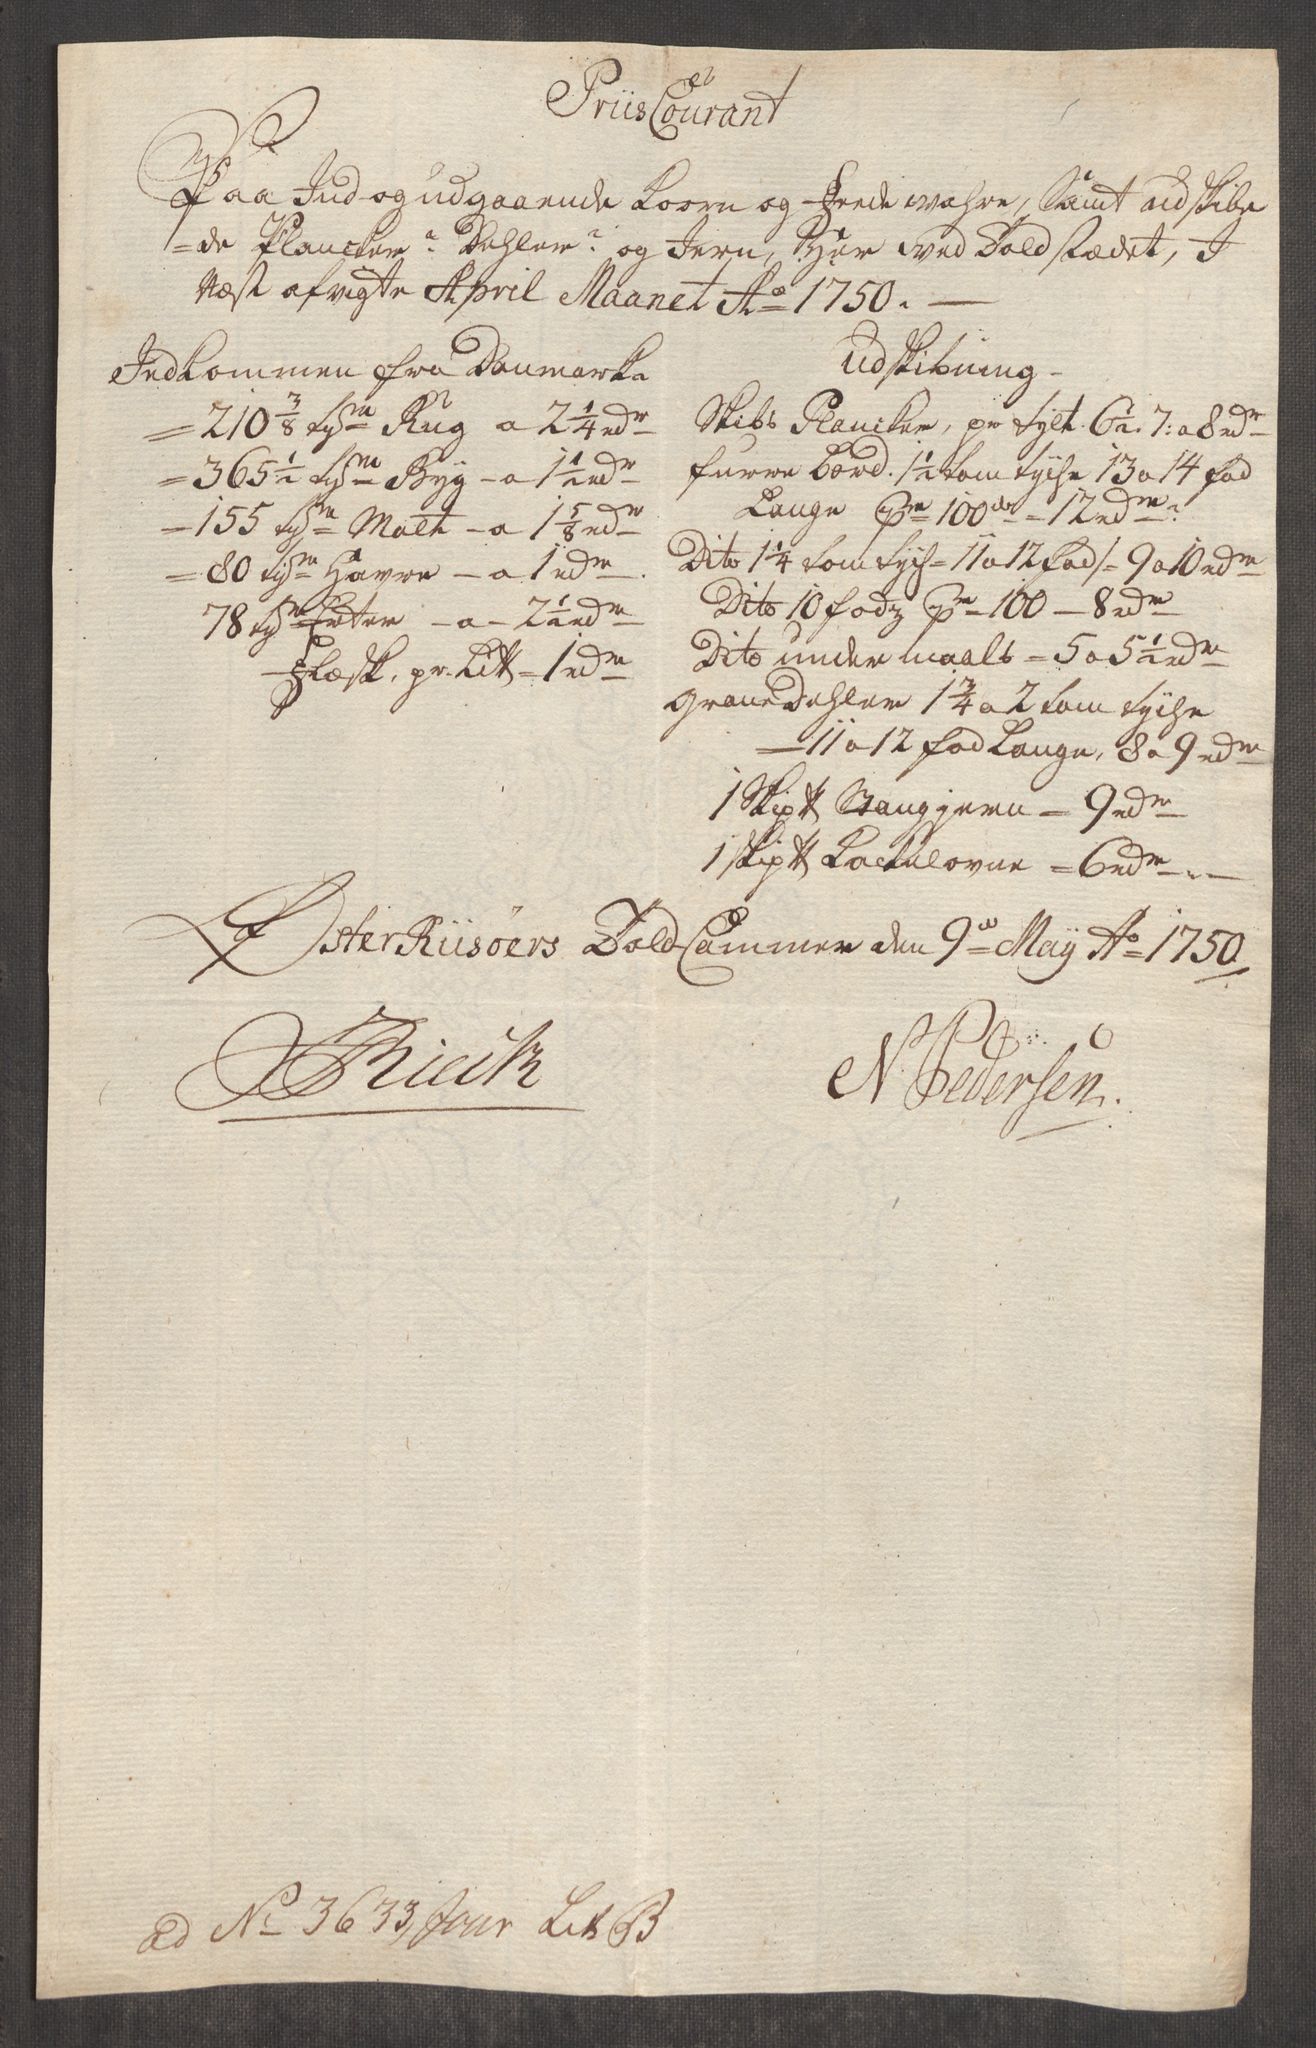 Priis Courant
Paa Ind- og udgaaende Koorn og Fede wahre, Samt udskibe
=de Plancker, Dehler, og Jern, Her ved Toldstædet, I
Næst afvigte April Maanet Ao 1750.
Indkommen fra Danmark
=210 3/8 tr Rug a 2 1/4 rdr
=365 1/2 tr Byg - a 1 1/2 rdr
=155 tr Malt - a 1 5/8 rdr
=80 tr Havre - a 1 rdr
78 tr Erter - a - 2 1/2 rdr
Flæsk, pr. Li℔ = 1 rdr
Udskibning
Skibs Plancker, pr tylt 6 1/2. 7: a 8 rdr
furre Bord. 1 1/2 tom tyche 13 a 14 fod
Lange pr 100de - 12 rdr
Dito 1 1/4 tom tych = 11 a 12 fod = 9 a 10 rdr
Dito 10 fodz pr 100 - 8 rdr
Dito under maals = 5 a 5 1/2 rdr
Grane Dehler 1 3/4 a 2 tom tyche
- 11 a 12 fod Lange, 8 a 9 rdr
1 Skip℔ Stangjern = 9 rdr
1 skip℔ Kackelovne = 6 rdr
Øster Riisøers Told Cammer den 9de Maÿ Ao 1750
N Pedersen.
ad No 3633 Jour Litr B